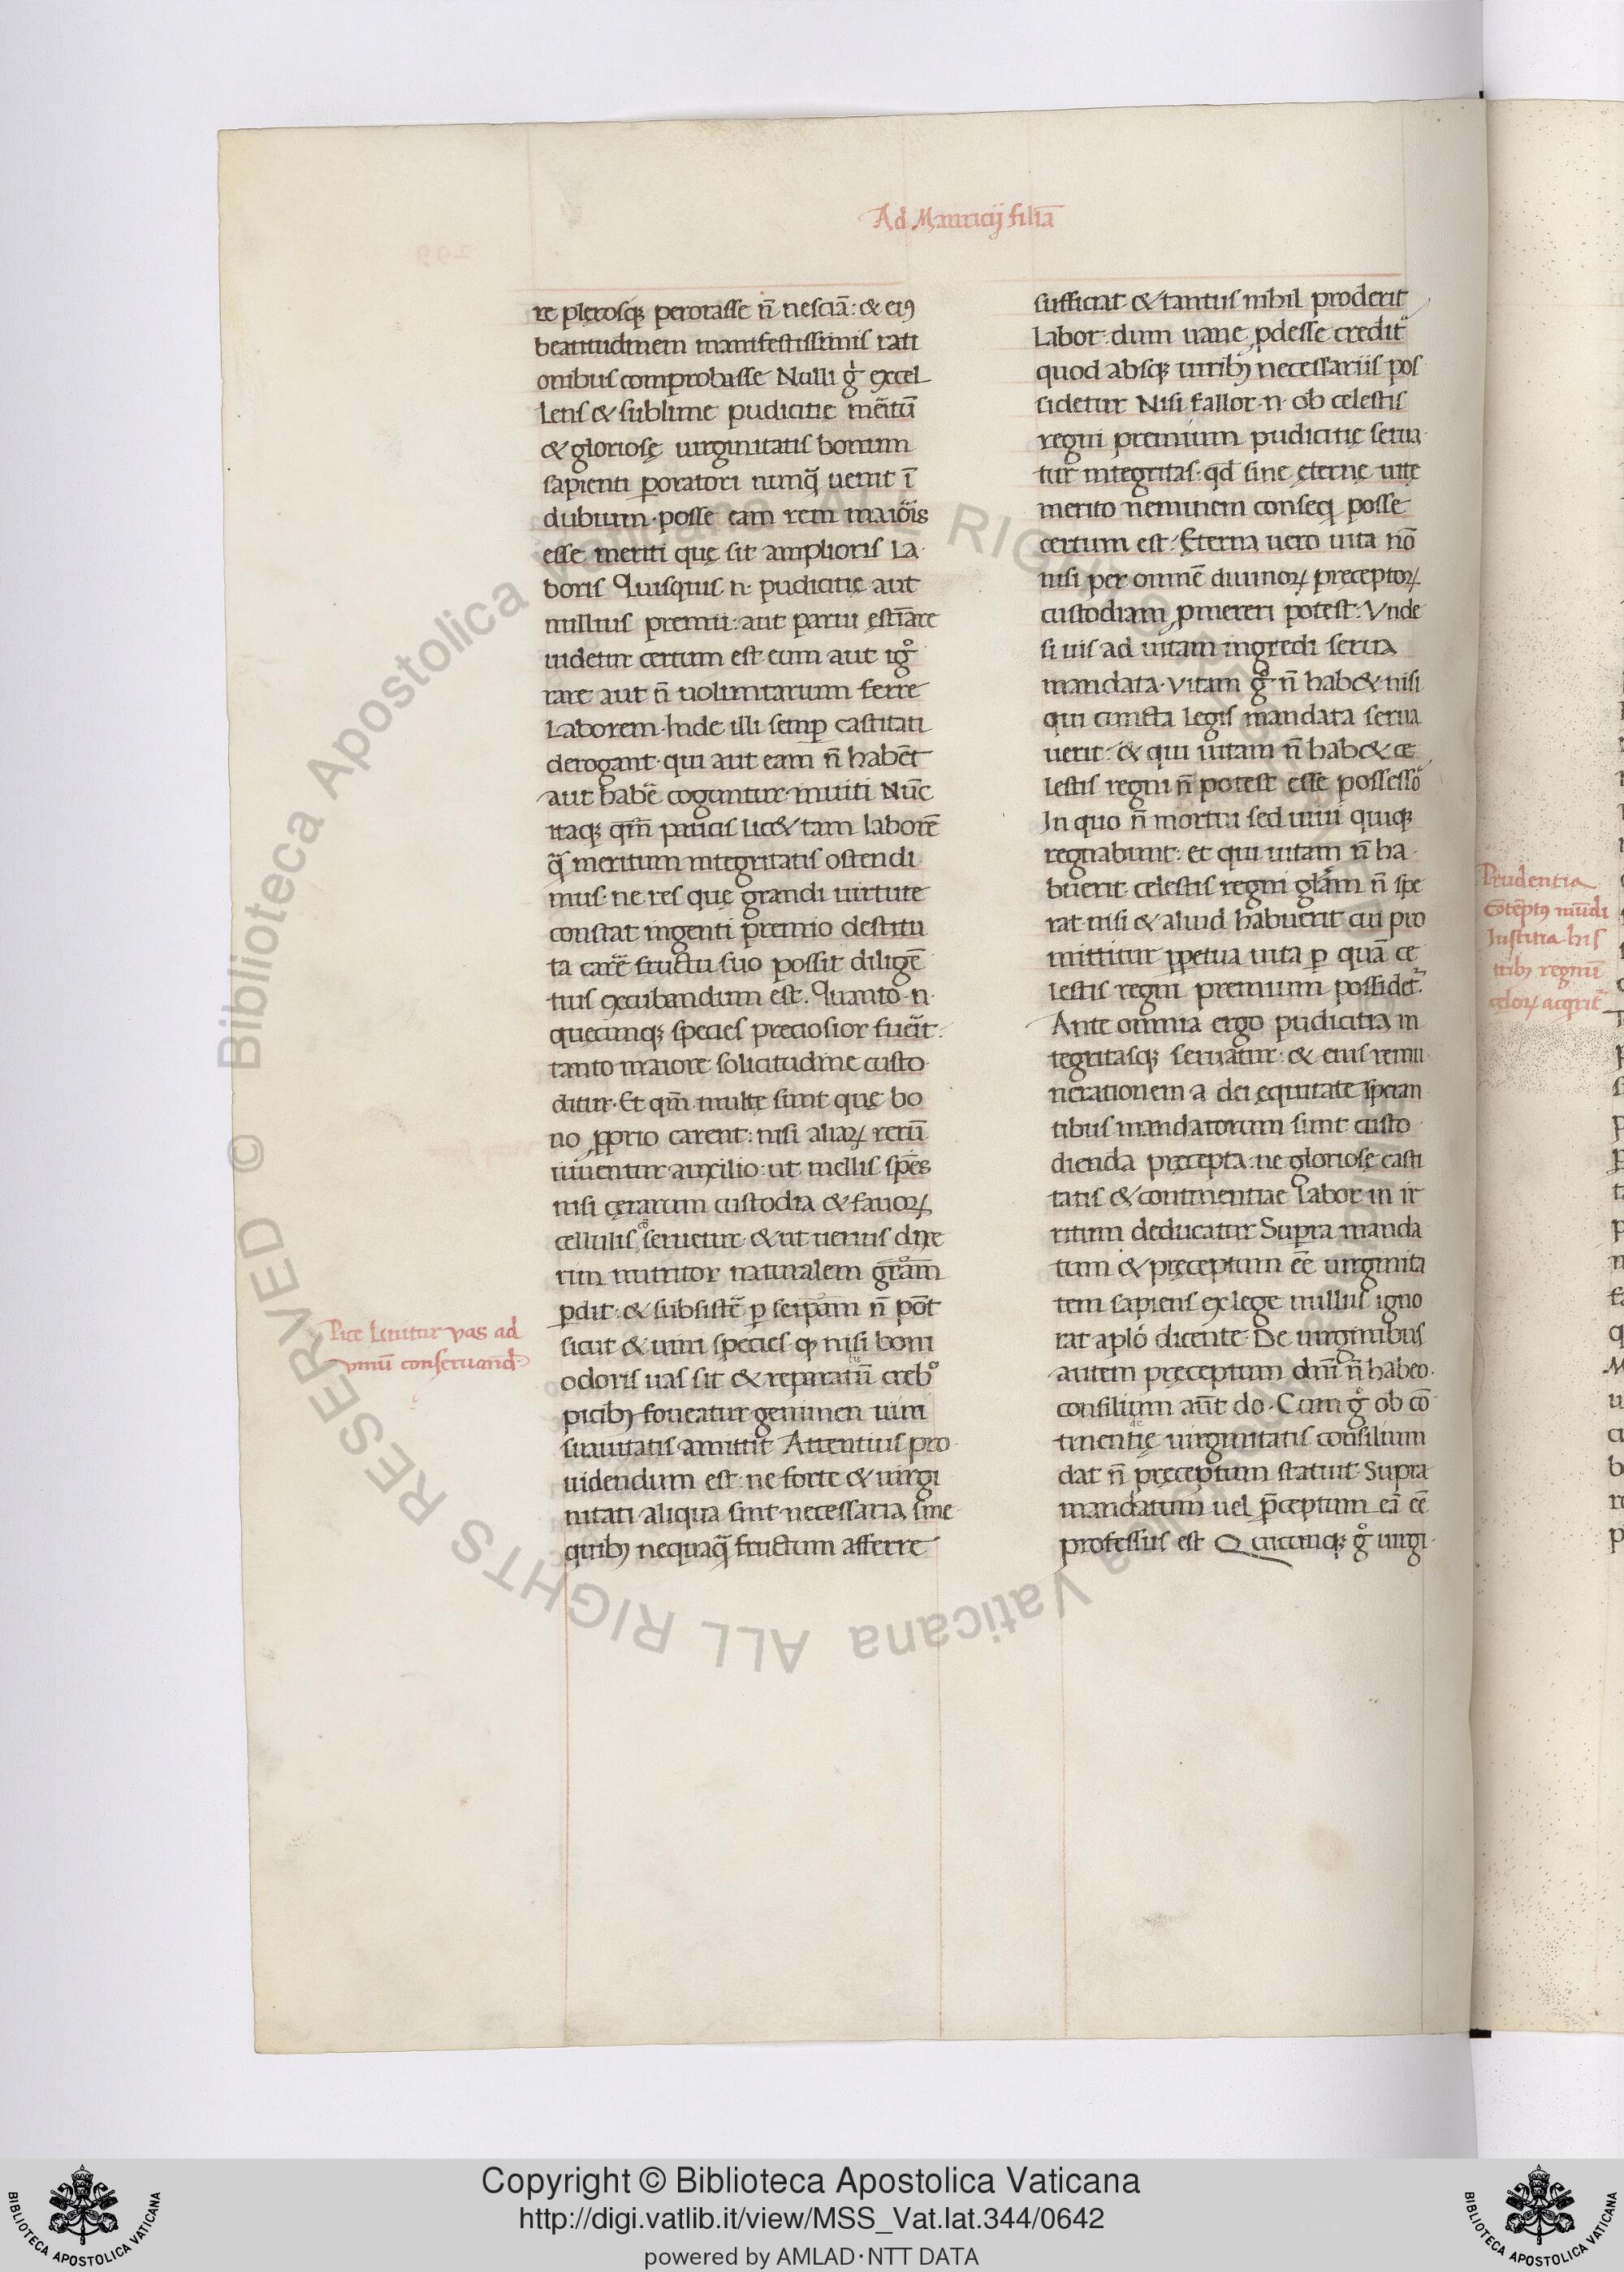 Ad Mauricij filiā
re plerosq; perorasse n̄ nesciā: & eiꝰ
beatitudinem manifestissimis rati
onibus comprobasse Nulli g̊ excel
lens & sublime pudicitie mēitū
& gloriosę uirginitatis bonum
sapienti ꝑoratori nunq̄ uenit ī
dubium. posse eam rem maiōis
esse meriti quę sit amplioris la
boris Quisquis .n. pudicitię aut
nullius premii: aut parui ęstīare
uidetur certum est eum aut ig̊
rare aut n̄ uoluntarium ferre
Laborem. Inde illi semꝑ castitati
derogant. qui aut eam n̄ habēt
aut habē̄ coguntur inuiti Nūc
itaq; qm̄ paucis lic& tam laborē
q̄ meritum integritatis ostendi
mus. ne res quę grandi uirtute
constat ingenti premio destitu
ta carē̄ fructu suo possit diligē
tius excubandum est. Quanto .n.
quęcunq; species preciosior fuēit.
tanto maiore solicitudine custo
ditur. Et qm̄ multę sunt quę bo
no ꝓprio carent: nisi aliaꝝ rerū
iuuentur auxilio: ut mellis spēs
nisi cęrarum custodia & fauoꝝ
cellulis seruetur
nutritor naturalem gr̄am
ꝑdit. & subsistē̄ ꝑ seip̄am n̄ pōt
sicut & uini species
odoris uas sit
picibꝫ foueatur genuinen uim
suauitatis amittit Attentius pro
uidendum est. ne forte & uirgi
nitati aliqua sint necessaria, sine
quibꝫ nequaq̄ fructum afferre
Pice linitur vas ad
vinū conseruand
sufficiat & tantus nihil proderit
Labor. dum uane ꝓdesse credit᷑
quod absq; uiribꝫ necessariis pos
sidetur Nisi fallor .n. ob celestis
regni premium pudicitię serua
tur integritas. qd̄ sine ęternę uitę
merito neminem conseq̇ posse
certum est. Ęterna uero uita nō
nisi per omnē diuinoꝝ preceptoꝝ
custodiam ꝓmereri potest. Vnde
si uis ad uitam ingredi serua
mandata. vitam g̊ n̄ hab& nisi
qui cuncta legis mandata serua
uerit. & qui uitam n̄ hab& ce
lestis regni n̄ potest esse possessō
In quo n̄ mortui sed uiui quiq;
regnabunt. et qui uitam n̄ ha
buerit celestis regni gl̄am n̄ spe
rat nisi & aliud habuerit cui pro
mittitur ꝑpetua uita ꝑ quā ce
lestis regni premium possidet᷑.
Ante omnia ergo pudicitia in
tegritasq; seruatur. & eius remu
nerationem a dei equitate speran
tibus mandatorum sunt custo
dienda pręcepta: ne gloriosę casti
tatis & continentiae labor in ir
ritum deducatur Supra manda
tum & pręceptum eē uirginita
tem sapiens ex lege nullus igno
rat aplō dicente. De uirginibus
autem pręceptum dn̄i n̄ habeo.
consilium aūt do. Cum g̊ ob cō
tinentię uirginitatis consilium
dat n̄ pręceptum statuit. Supra
mandatum uel p̄ceptum eā eē
professus est Quicunq; g̊ uirgi
Prudentia
Cōtēptꝰ mūdi
Iusticia. his
tribꝫ regnū
celoꝝ acqrit᷑
Copyright © Biblioteca Apostolica Vaticana
http://digi.vatlib.it/view/MSS_Vat.lat.344/0642
powered by AMLAD·NTT DATA
BIBLIOTECA APOSTOLICA VATICANA
BIBLIOTECA APOSTOLICA VATICANA
© Biblioteca Apostolica Vaticana ALL RIGHTS RESERVED